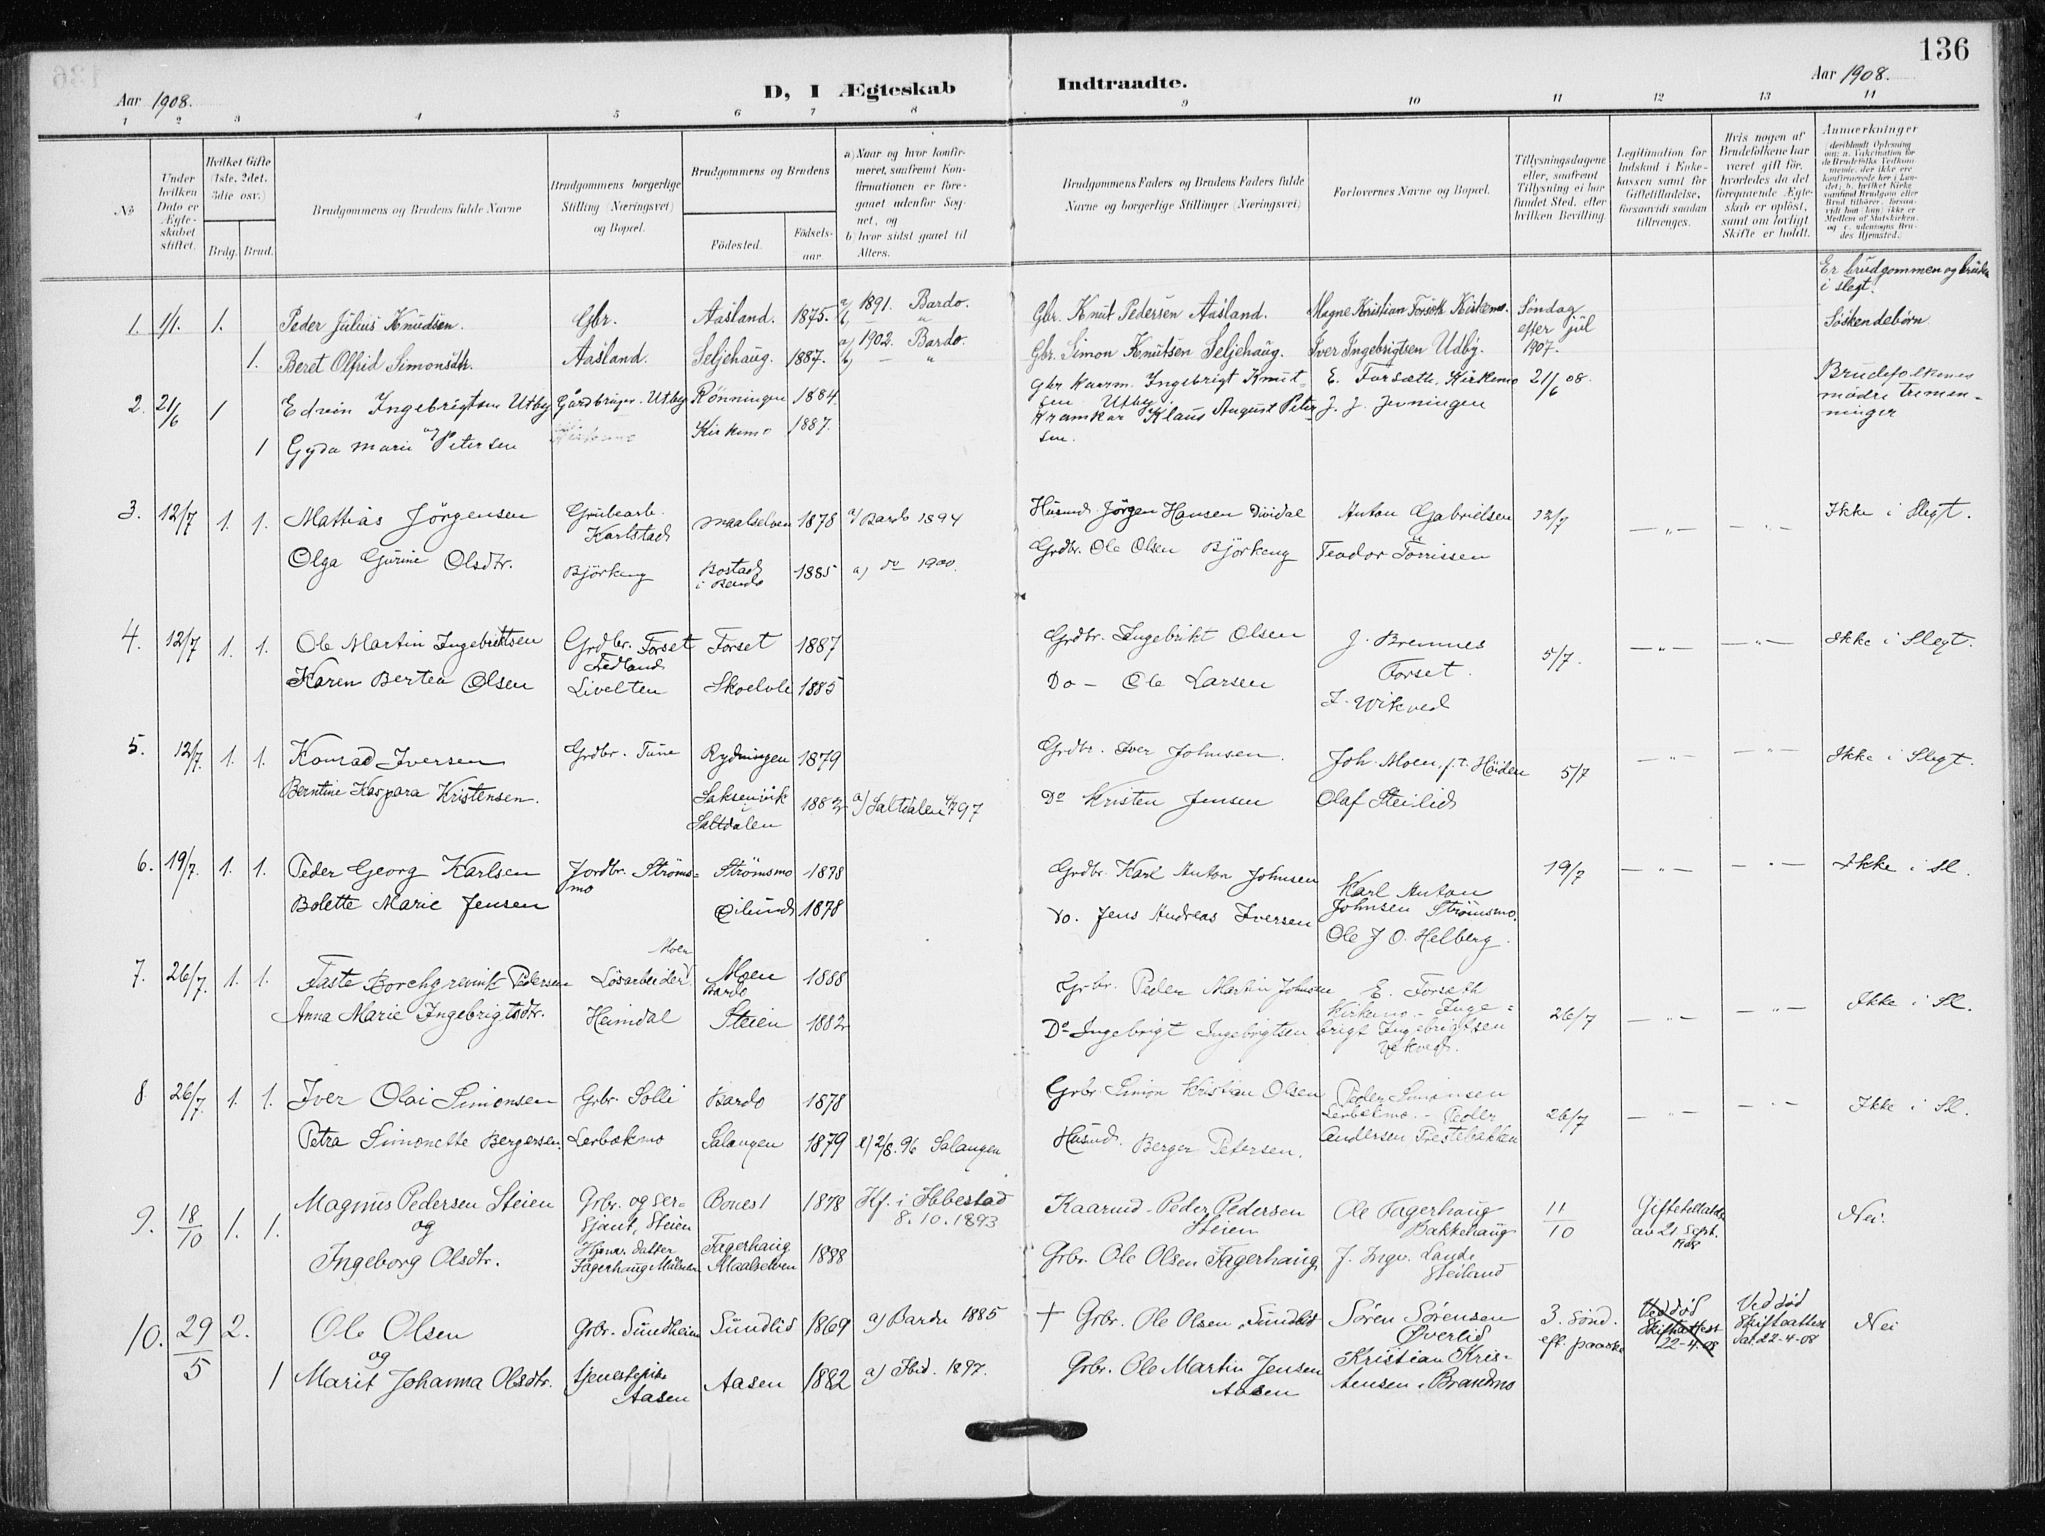 136
Aar 1908.
D, I Ægteskab
Indtraadte.
Aar 1908.
1 2 3 4 5 6 7 8 9 10 11 12 13 14
No
Under hvilken Dato er Ægteskabet stiftet.
Hvilket Gifte (1ste, 2det, 3die osv.)
Brdg. Brud.
Brudgommens og Brudens fulde Navne
Brudgommens borgerlige Stilling (Næringsvei) og Bopæl.
Brudgommens og Brudens
Fødested.
Fødsels-aar.
a) Naar og hvor konfirmeret, saafremt Konfirmationen er foregaaet udenfor Sognet, og
b) hvor sidst gaaet til Alters.
Brudgommens Faders og Brudens Faders fulde Navne og borgerlige Stillinger (Næringsvei)
Forlovernes Navne og Bopæl.
Tillysningsdagene eller, saafremt Tillysning ei har fundet Sted, efter hvilken Bevilling.
Legitimation for Indskud i Enkekassen samt for Giftetilladelse, forsaavidt saadan tiltrænges.
Hvis nogen af Brudefolkene har været gift før, hvorledes da det foregaaende Ægteskab er opløst, samt om lovligt Skifte er holdt.
Anmerkninger
deriblandt Oplysning om: a. Vakcination for de Brudefolks Vedkommende, der ikke ere konfirmerede her i Landet; b. hvilket Kirkesamfund Brudgom eller Brud tilhører, forsaavidt han (hun) ikke er Medlem af Statskirken, og c. udensogns Brudes Hjemsted.
Er brudgommen og bruden i slegt.
1. 1/1. 1. Peder Julius Knudsen. Gbr. Aasland. 1875. a) 1891. Bardo. b) — " Gbr. Knut Pedersen Aasland. Magne Kristian Forseth Kirkemo. Söndag efter jul 1907. Söskendebörn
1. Beret Olfrid Simonsdtr. Aasland. Seljehaug. 1887. a) 1902. Bardo. b) — " Gbr. Simon Knutsen Seljehaug. Iver Ingebrigtsen Udby.
2. 21/6 1 Edvin Ingebrigtsen Utby Gårdbruger. Utby Rönningen 1884. Gbr Kaarm. Ingebrigt Knutsen Utby. E. Forseth. Kirkemo 21/6 08. Brudefolkenes mödre tremenninger
og
1 Gyda Marie Petersen Kirkemo Kirkemo 1887. Kramkar Klaus August Petersen. J. J. Jenningen
3. 12/7 1. 1. Mathias Jörgensen Grubearb. Karlstad Maalselven 1878 a) Bardo 1894 Husmd. Jörgen Hansen Dividal Anton Gabrielsen 12/7 — " — — " — Ikke i Slegt.
Olga Gurine Olsdtr. Björkeng Bostad i Bardo 1885 a) do 1900. Grdbr. Ole Olsen Björkeng Teodor Torrissen
4. 12/7 1. 1. Ole Martin Ingebriktsen Grdbr. Forset Fredland Forset 1887 Grdbr. Ingebrikt Olsen J. Bremnes Forset. 5/7. — " — — " — Ikke i Slegt.
Karen Bertea Olsen Livelten Skoelvle 1885 Do — Ole Larsen I. Wikved
5. 12/7. 1. 1. Konrad Iversen Grdbr. Tune Rydningen 1879 Grdbr. Iver Johnsen. Joh. Moen, p.t. Heiden 5/7 — " — — " — Ikke i Slegt.
Berntine Kaspara Kristensen. Saksenvik Saltdalen 1882 a) Saltdalen 4/7 97 Do Kristen Jensen Olaf Steilid
6. 19/7. 1. 1. Peder Georg Karlsen Jordbr. Strömsmo Strömsmo 1878 Grdbr. Karl Anton Johnsen Karl Anton Johnsen Strömsmo. 19/7 — " — — " — Ikke i Sl.
Bolette Marie Jensen Eilund 1878 Do. Jens Andreas Iversen Ole J O. Helberg.
7. 26/7. 1. 1. Faste Borchgrevink Pedersen Lösarbeider Moen Moen Bardo 1888 Grbr. Peder Martin Johnsen E. Forseth Kirkemo — Inge= 26/7 — " — — " — Ikke i Sl.
Anna Marie Ingebrigtsdtr. Heimdal Steien 1882 Do Ingebrigt Ingebrigtsen brigt Ingebrigtsen Vekved.
8 26/7. 1. 1. Iver Olai Simonsen Grbr. Solli Bardo 1878 Grbr. Simon Kristian Olsen Peder Simonsen Lerbækmo. — Peder 26/7 — " — — " — Ikke i Sl.
Petra Simonette Bergersen. Lerbækmo Salangen 1879 a) 2/8. 96 Salangen Husmd. Berger Petersen. Andersen Prestebakken
9. 18/10 1. 1. Magnus Pedersen Steien Grbr. og Sersjant, Steien Bones 1878 Kf. i Ibbestad 8.10.1893 Kaarmd. Peder Pedersen Steien Ole Fagerhaug Bakkehaug 11/10 Giftetilladelse av 21 Sept. 1908 Nei.
og
Ingeborg Olsdtr. Hjemv. datter Fagerhaug Målselv Fagerhaug Maalselven 1888 Grbr. Ole Olsen Fagerhaug J. Ingv. Lande Steiland
10. 29/5 2. Ole Olsen Grbr. Sundheim Sundlid 1869 a) Bardu 1885 + Grbr. Ole Olsen Sundlid Sören Sörensen Överlid 3. sönd. eft. paaske Ved död Skifteattest 22-4.08 Ved död Skifteattest dat. 22-4-08 Nei
og
1 Marit Johanna Olsdtr. tjenestepike Aasen Aasen 1882 a) Ibid. 1897. Grbr. Ole Martin Jensen Aasen Kristian Kristensen, Brandmo